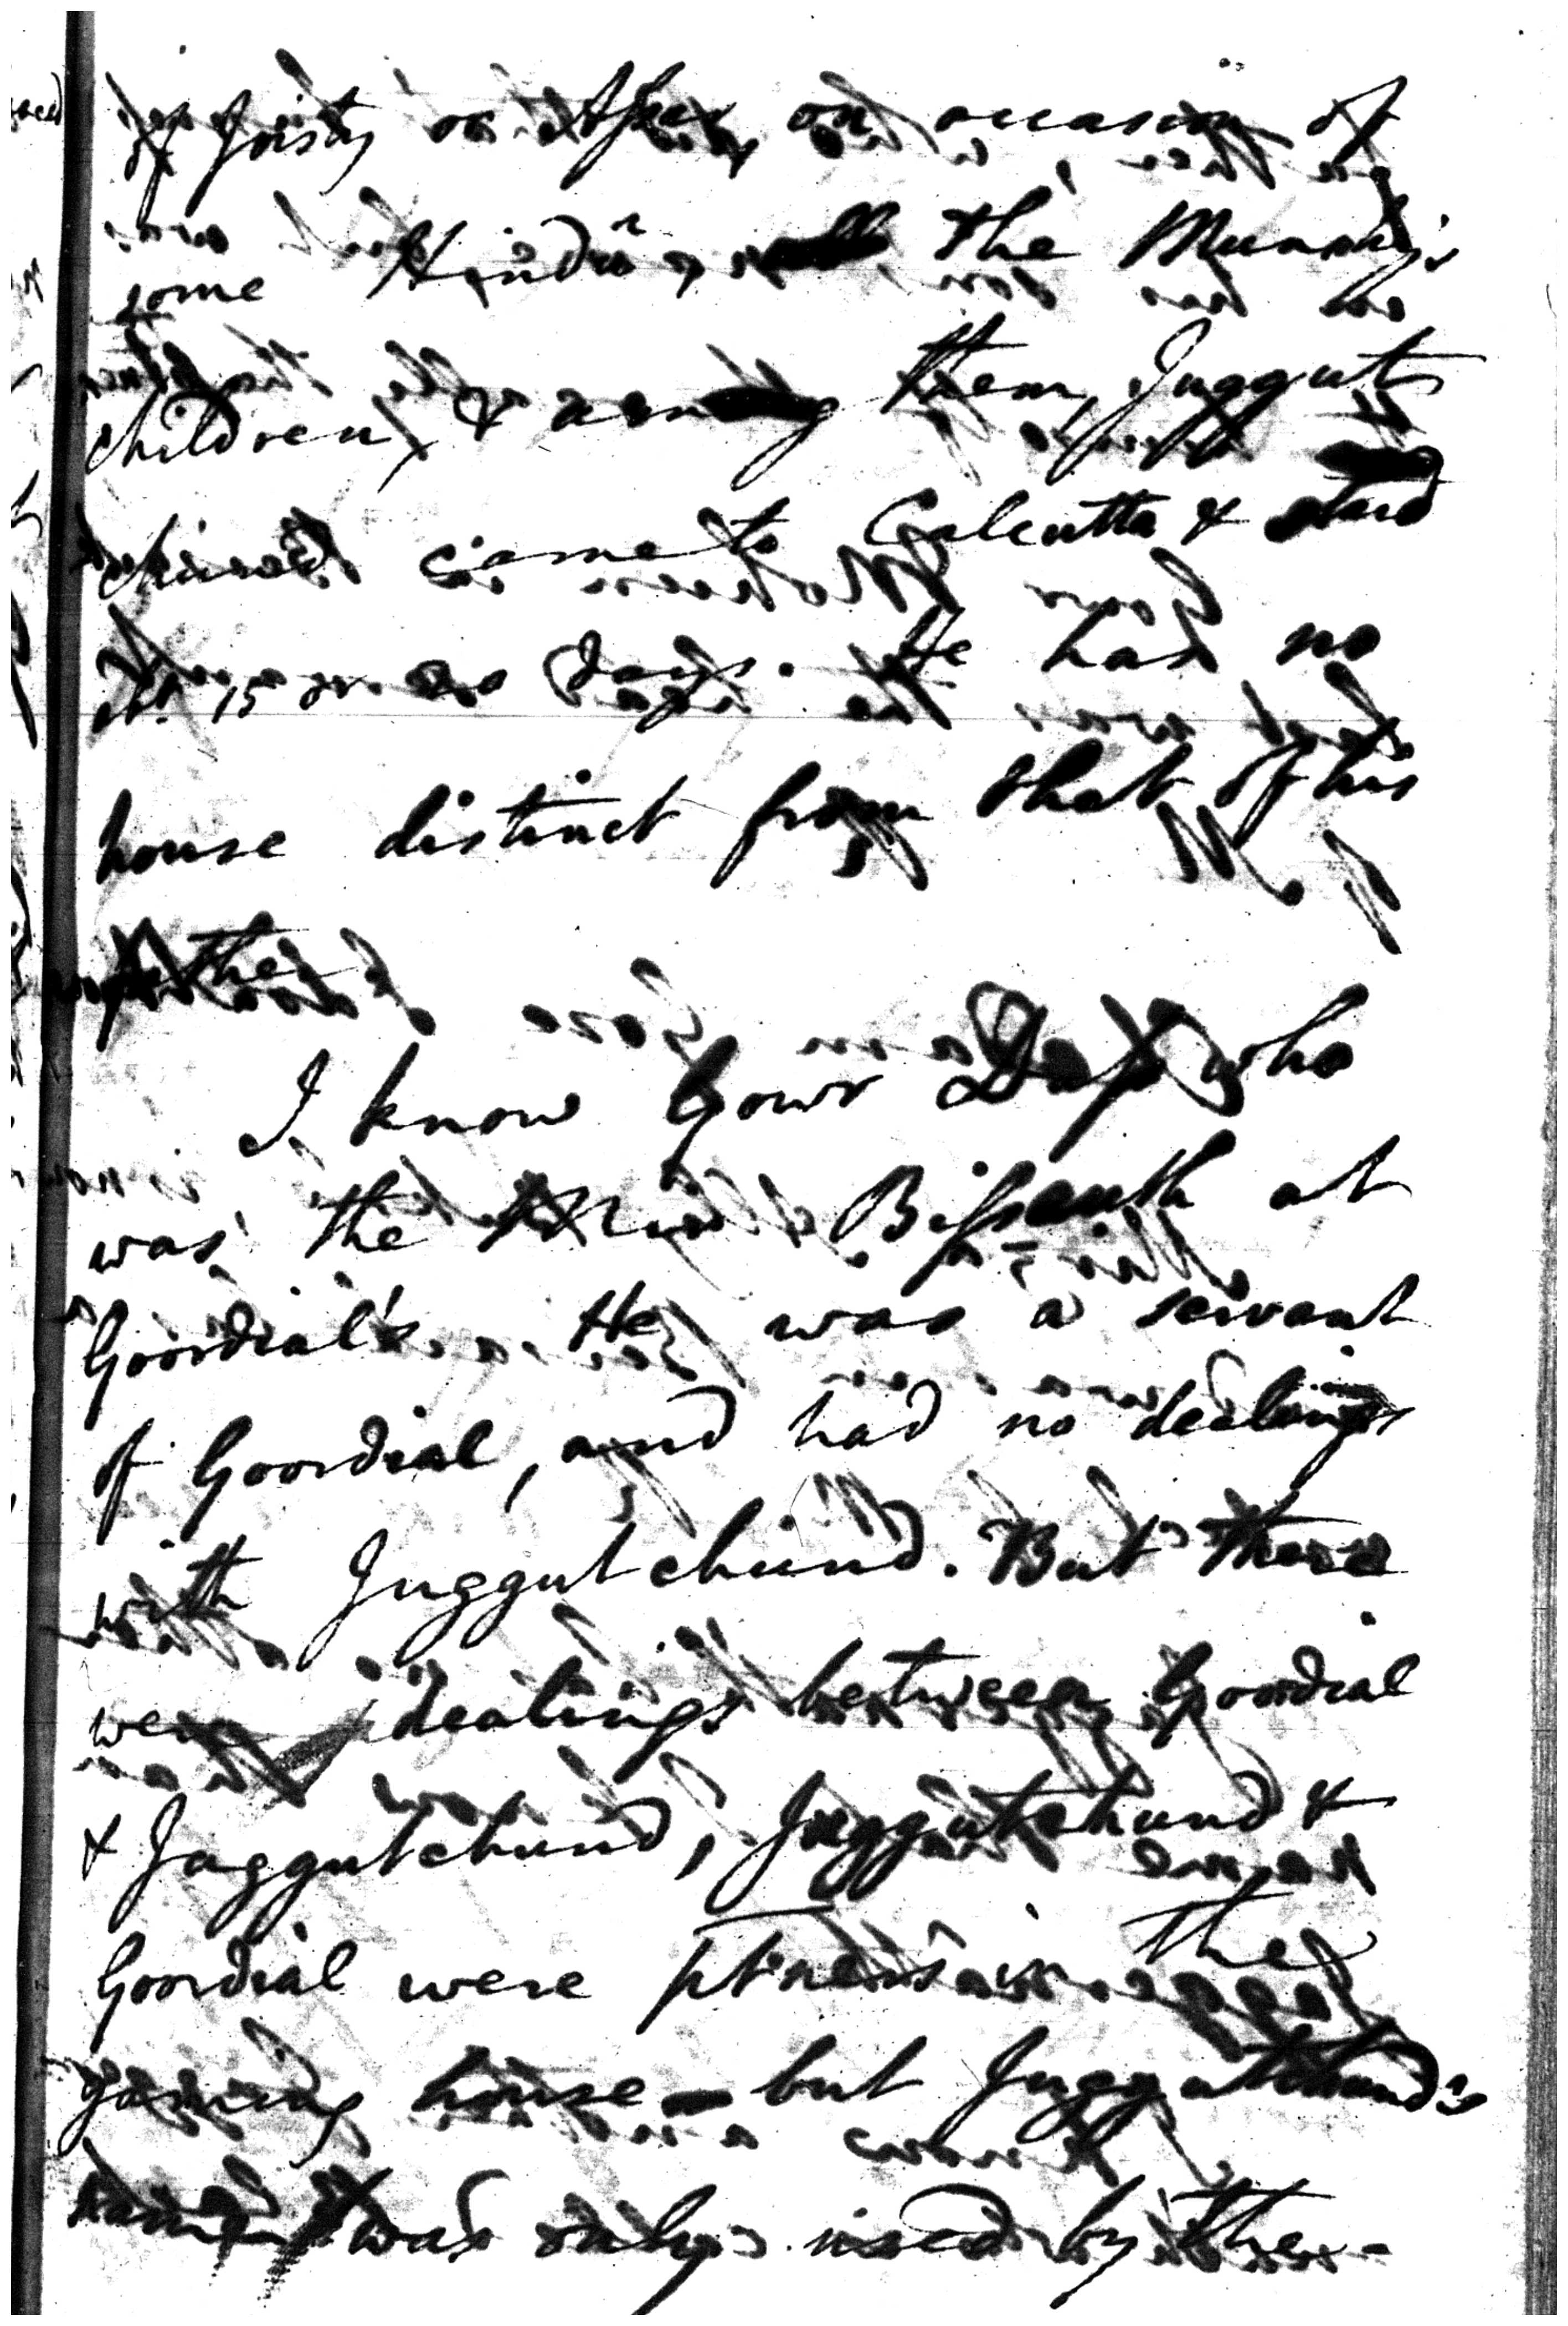 of Joisty or Asar, on occasion of
some Hindu, the Munshy's
children, & among them, Juggut
chund came to Calcutta & staid
abt. 15 or 20 days. He had no
house distinct from that of his
father
I know Gour Dass who
was the Bissonuth at
Goordial's He was a servant
of Goordial, and had no dealings
with Juggutchund. But there
were dealings between Goordial
& Juggutchund, Juggutchund &
Goordial were ptners in the
gaming house — but Juggutchund's
name was only used by the-